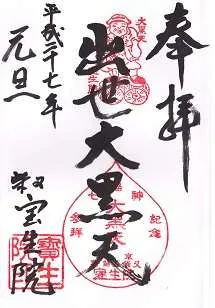 奉拝
大黒天
出世大黒天
平成二十七年
元旦
秩父
宝生院